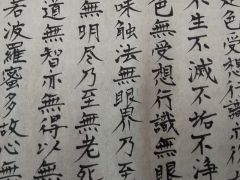 不生不滅不垢不淨
色無受想行識無眼
味触法無眼界乃至
無明尽乃至無老死
道無智亦無得以無
若波羅蜜多故心無